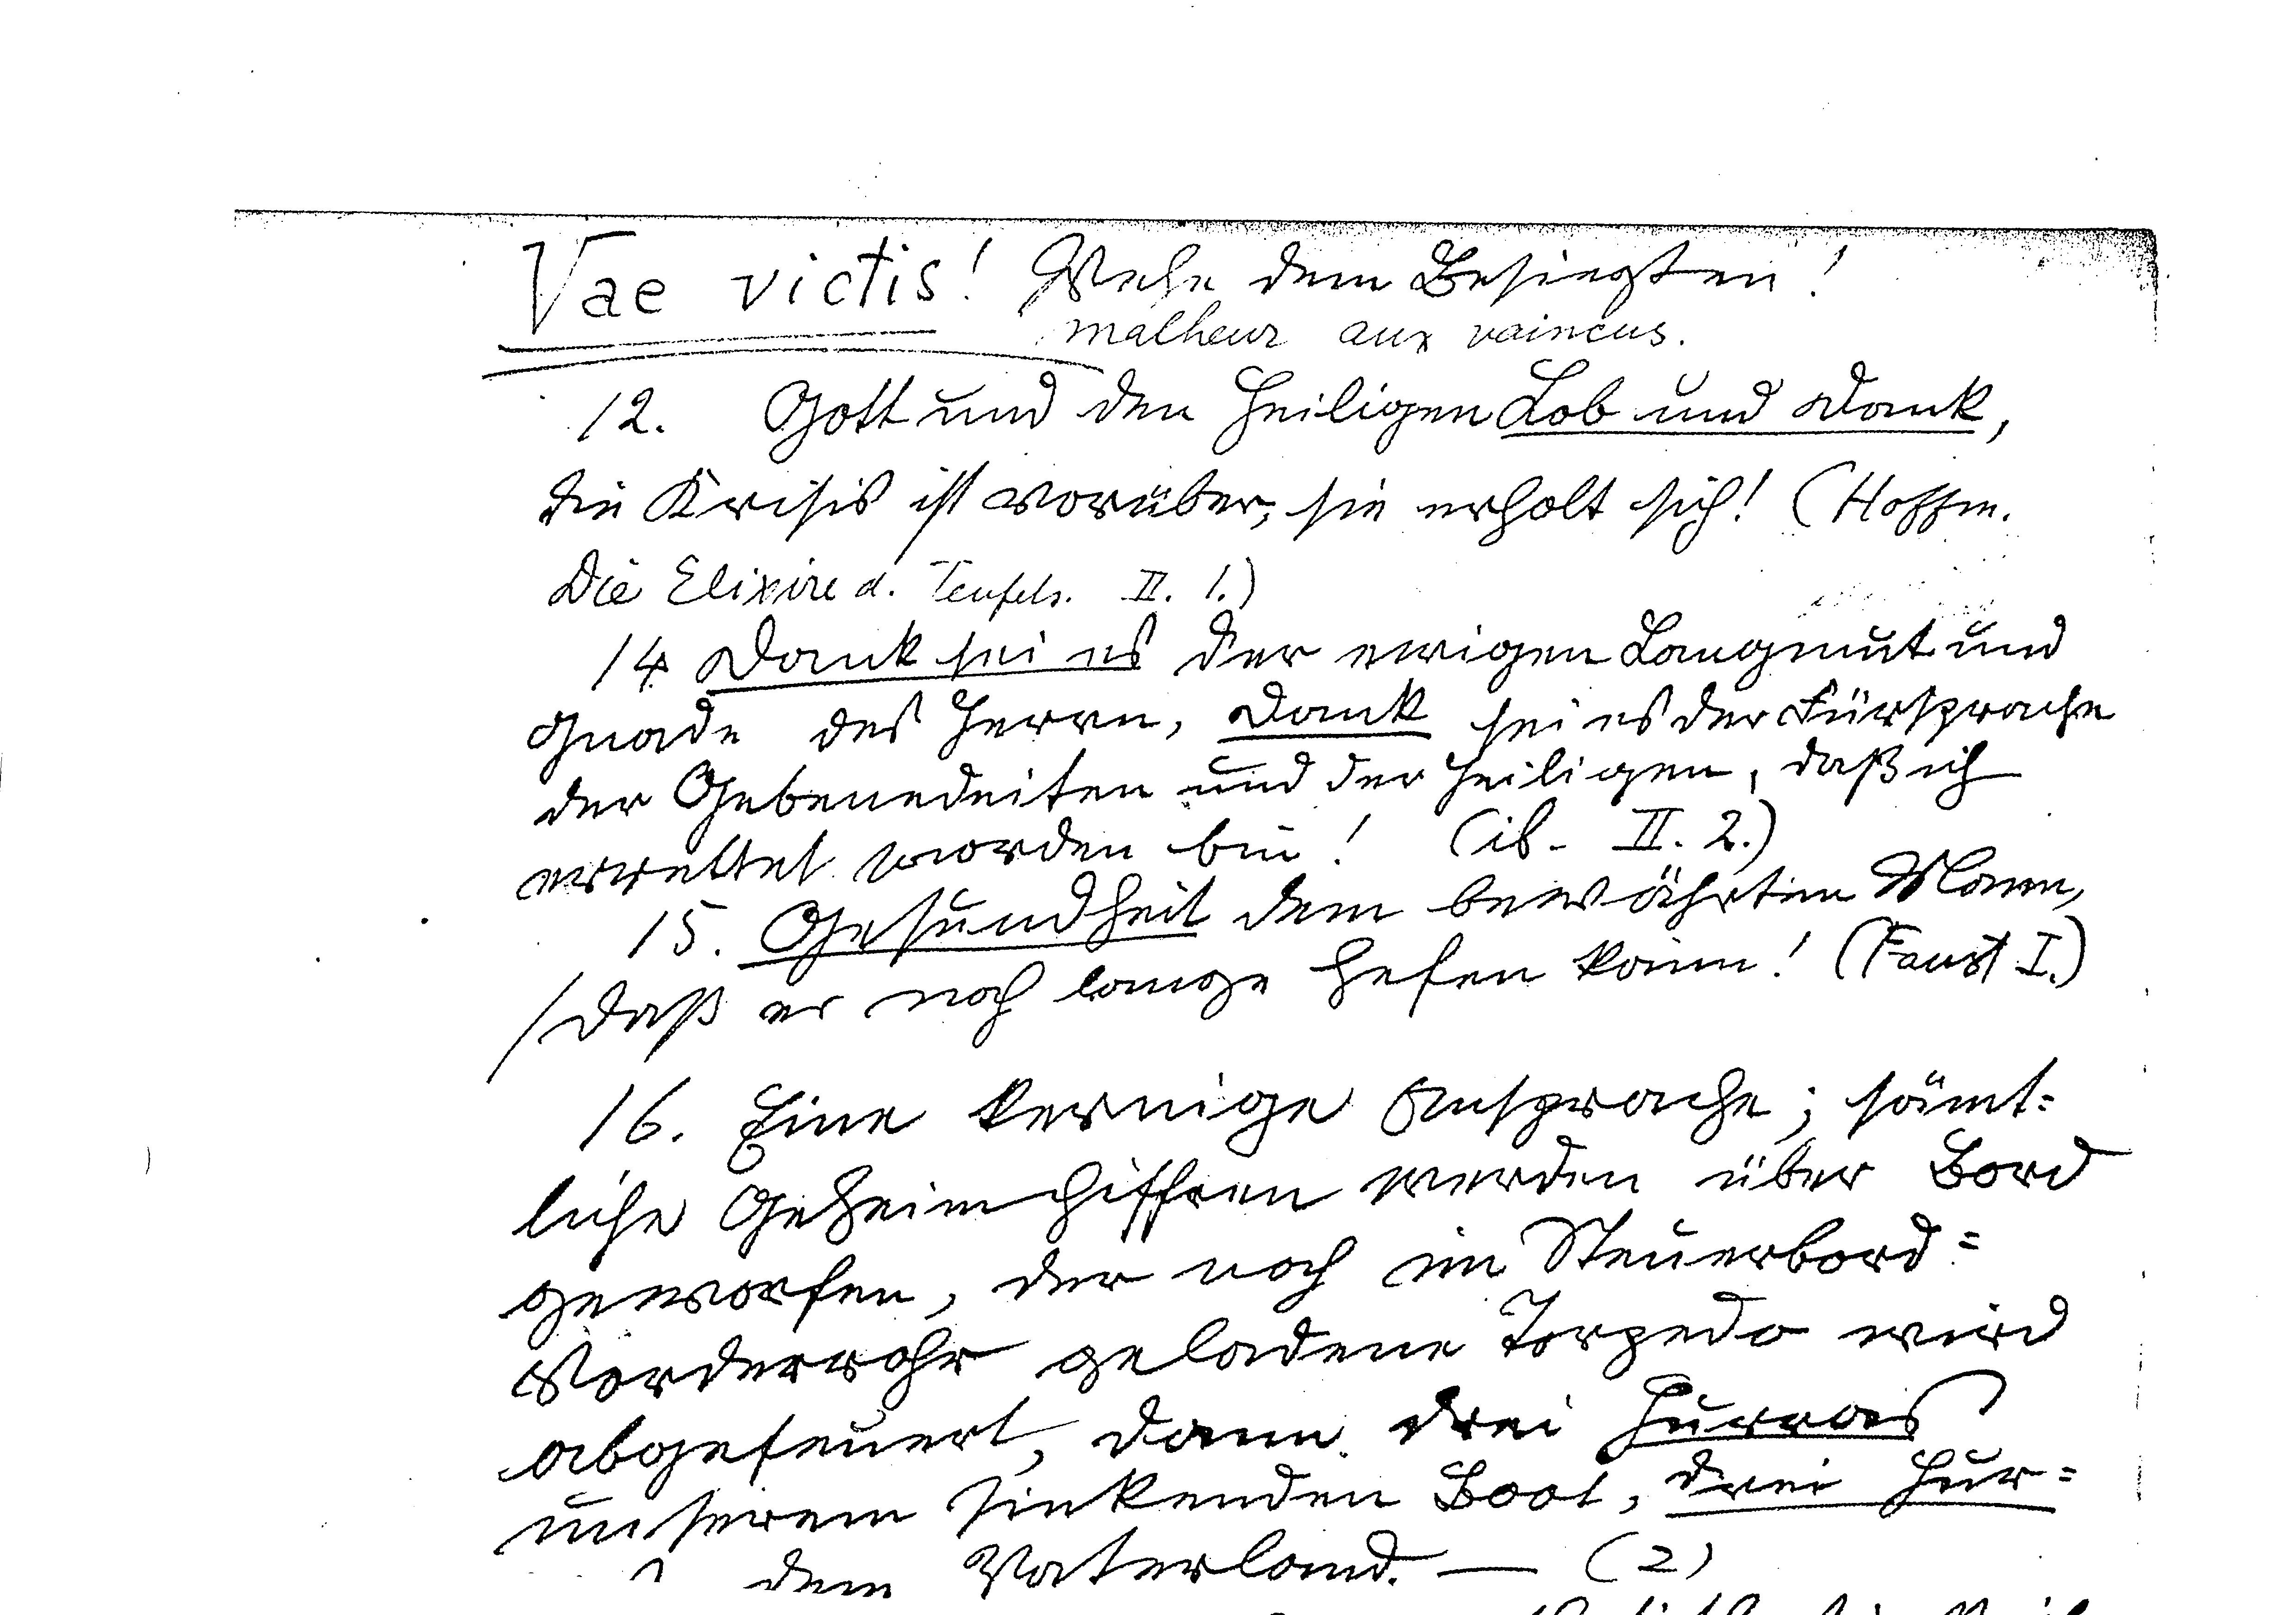 Vae victis! Wehe dem Besiegten!
malheur aux vaincus.
12. Gott und den Heiligen Lob und Dank,
die Krisis ist vorüber, sie erholt sich! (Hoffm.
Die Elixire d. Teufels. II. 1.)
14. Dank sei es der ewigen Langmut und
Gnade des Herrn, Dank sei es der Fürsprache
der Gebenedeiten und der Heiligen, daß ich
errettet worden bin! (ib. II. 2.)
15. Gesundheit dem bewährten Mann,
/ Daß er noch lange helfen kann! (Faust I.)
16. Eine kernige Ansprache; sämt=
liche Geheimchiffren werden über Bord
geworfen, der noch im Steuerbord=
Vorderrohr geladene Torpedo wird
abgefeuert, dann drei Hurras
unserem sinkenden Boot, drei Hur=
dem Vaterland. — (2)